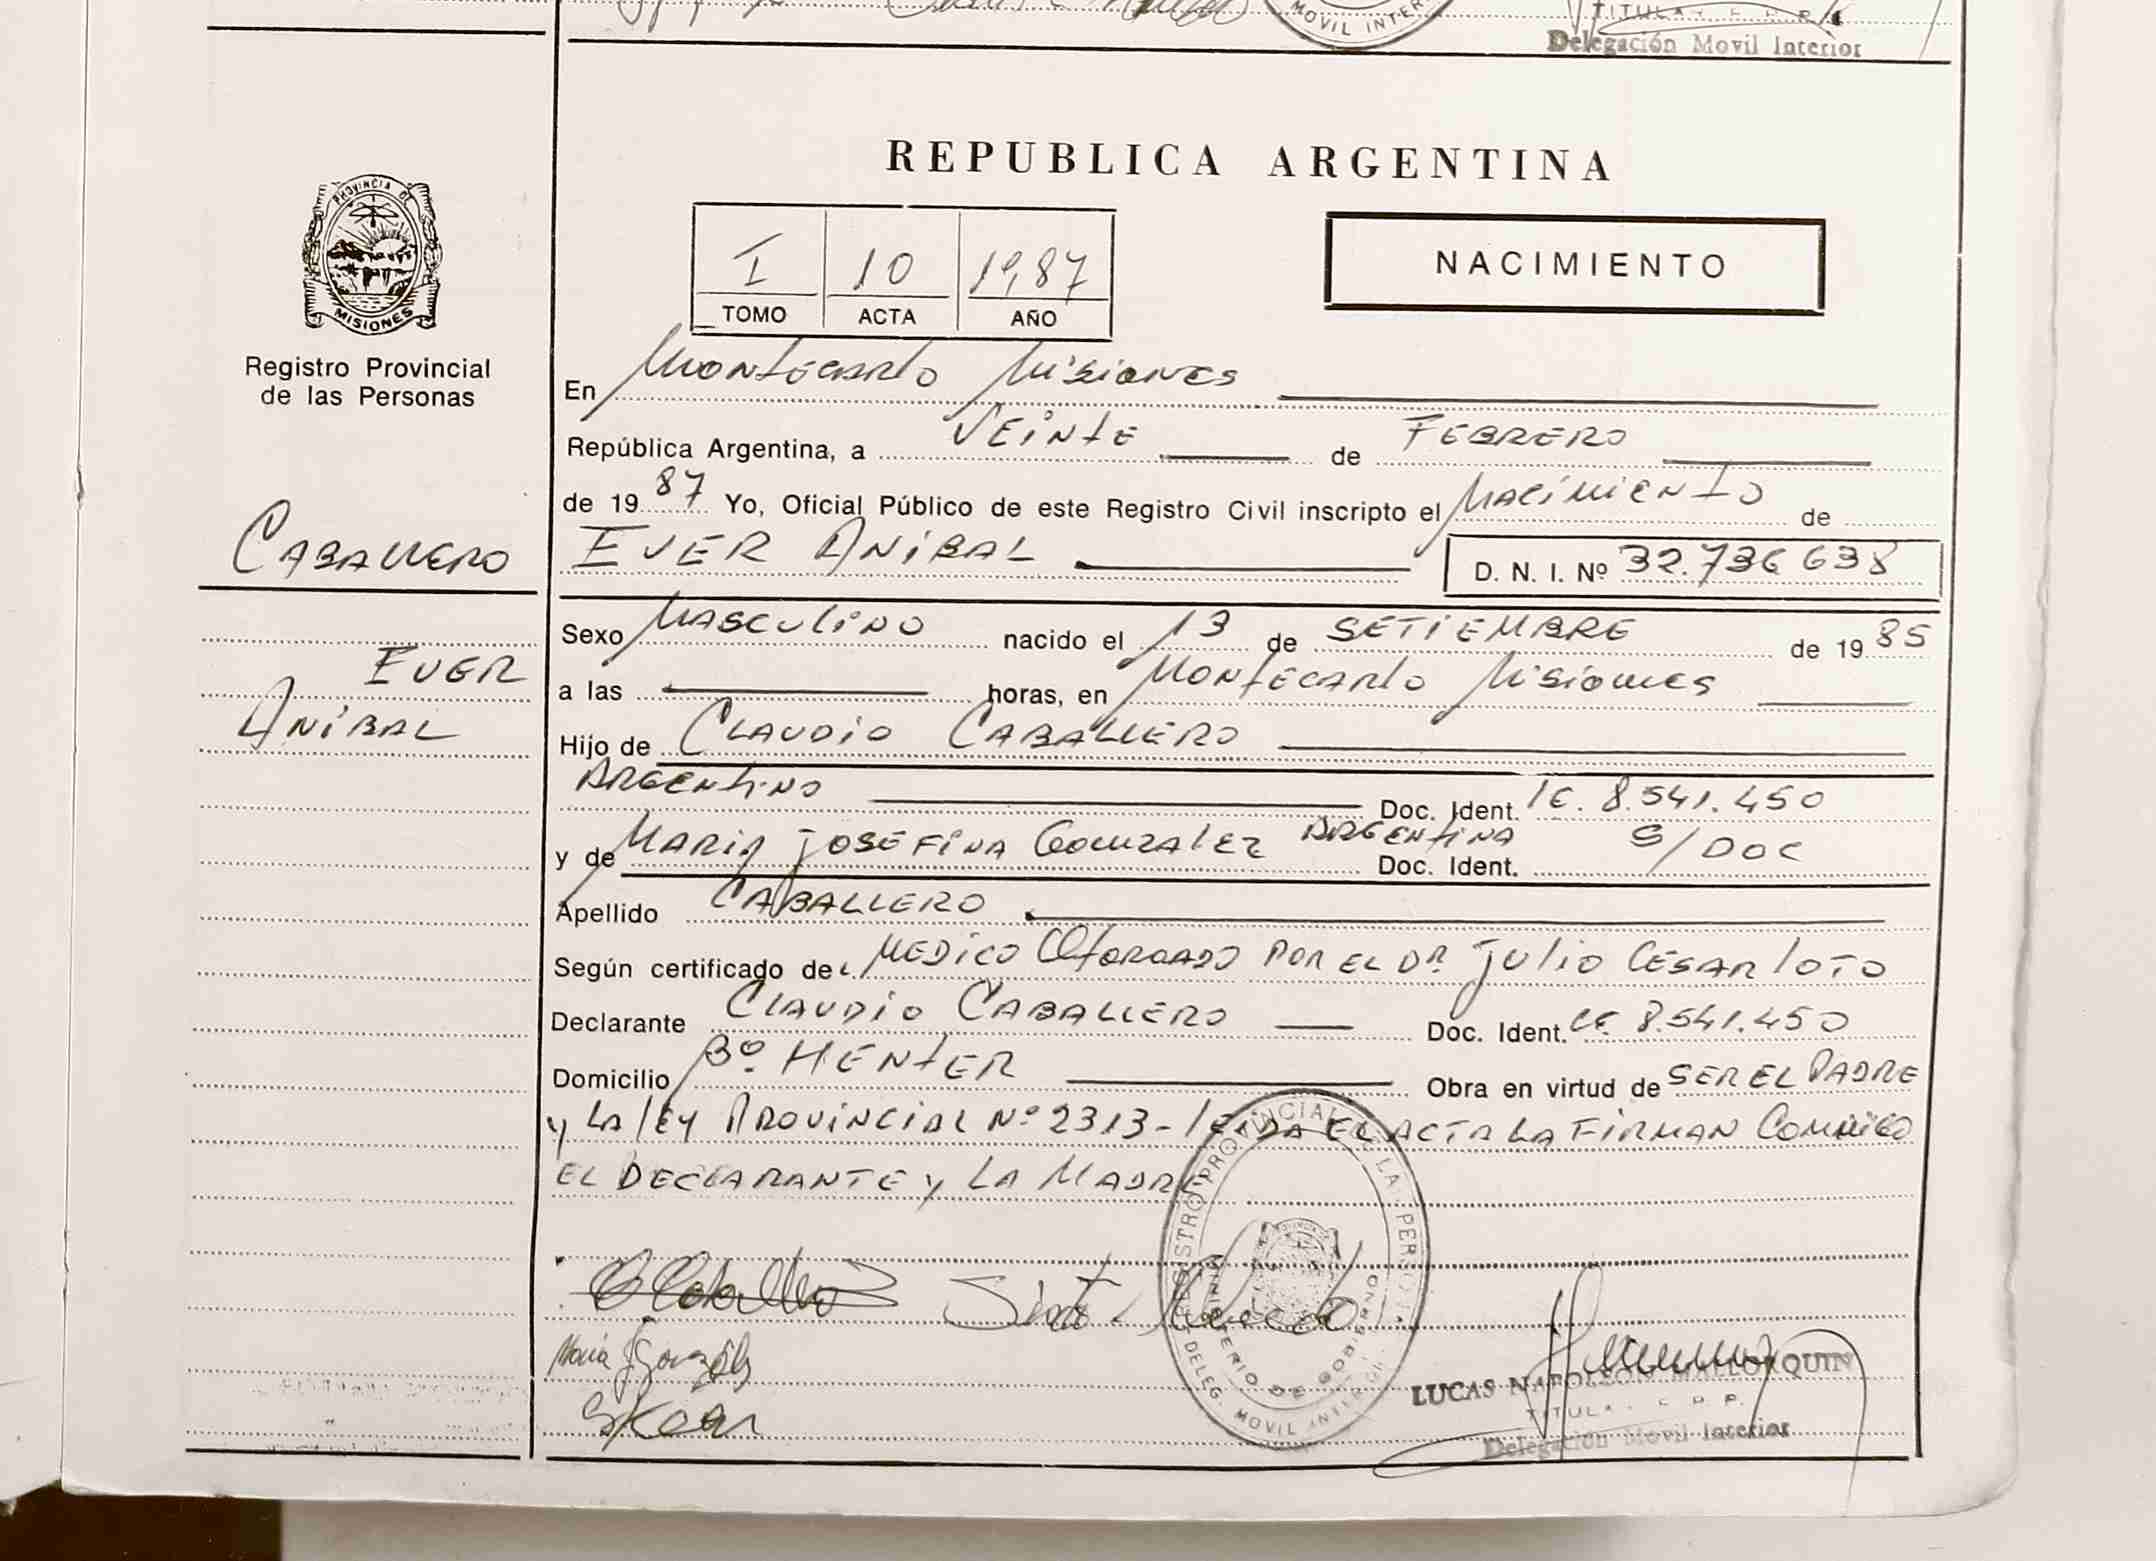 MOVIL INTER
TITULAR
Delegación Movil Interior
REPUBLICA ARGENTINA
PROVINCIA DE
MISIONES
Registro Provincial
de las Personas
I 10 19,87
TOMO ACTA AÑO
NACIMIENTO
En Montecarlo Misiones
República Argentina, a Veinte de FEBRERO
de 19 87 Yo, Oficial Público de este Registro Civil inscripto el Nacimiento de
CABALLERO
EVER ANIBAL D. N. I. Nº 32.736 638
Sexo MASCULINO nacido el 13 de SETIEMBRE de 19 85
EVER
ANIBAL
a las horas, en Montecarlo Misiones
Hijo de CLAUDIO CABALLERO
ARGENTINO Doc. Ident. LE. 8.541.450
y de MARIA JOSEFINA GONZALEZ ARGENTINA Doc. Ident. S/DOC
Apellido CABALLERO
Según certificado de MEDICO OTORGADO POR EL DR. JULIO CESAR LOTO
Declarante CLAUDIO CABALLERO Doc. Ident. LE. 8.541.450
Domicilio Bº HENTER Obra en virtud de SER EL PADRE
y LA LEY PROVINCIAL Nº 2313 - LEIDA EL ACTA LA FIRMAN CONMIGO
EL DECLARANTE y LA MADRE
REGISTRO PROVINCIAL DE LAS PERSONAS
MINISTERIO DE GOBIERNO
DELEG. MOVIL INTERIOR
María J González
LUCAS NAPOLEON MALLORQUIN
TITULAR
Delegación Movil Interior